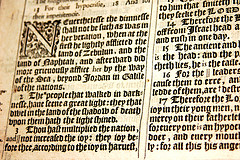 Neverthelesse the dimnesse
shall not be such as was in
her vexation, when at the
first he lightly afflicted the
land of Zebulun, and the
land of Naphtali, and afterward did
more grievously afflict her by the way
of the Sea, beyond Jordan in Galile
of the nations.
2 The people that walked in dark-
nesse, have seene a great light: they that
dwel in the land of the shadow of death,
upon them hath the light shined.
3 Thou hast multiplied the nation,
and not increased the joy: they joy be-
fore thee, according to the joy in harvest,
they seeke the LORD of
14 Therefore the
off from Israel head
and rush in one day.
15 The ancient and
is the head: and the
teacheth lies, he is the
16 For the leaders
cause them to erre, and
led of them, are
17 Therefore the Lord
joy in their yong men,
mercy on their fatherlesse
for every one is an hypocrite
doer, and every mouth
ly: for all this his anger